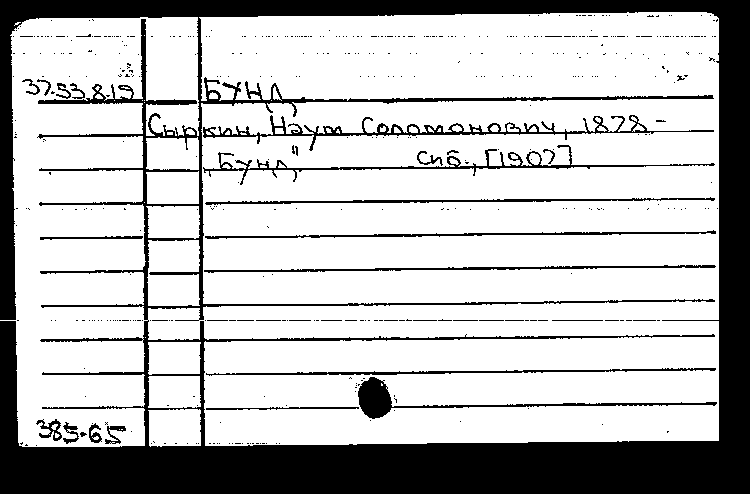 37.53.8.19 БУНД
Сыркин, Наум Соломонович, 1878-
„Бунд" Спб., [1907]
385-65